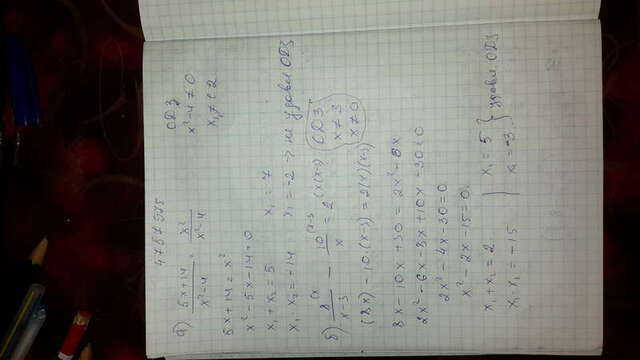 4787975
а) (5x+14)/(x²-4) = x²/(x²-4)
ОДЗ
x²-4≠0
x≠±2
5x+14=x²
x²-5x-14=0
x₁+x₂=5 x₁=7
x₁ x₂=-14 x₂=-2 → не удовл ОДЗ
б) 8/(x-3) - 10/x = 2 (x(x-3)
ОДЗ
x≠3
x≠0
(8x)-10·(x-3)=2(x)(x-3)
8x-10x+30=2x²-6x
2x²-6x-8x+10x-30=0
2x²-4x-30=0
x²-2x-15=0
x₁+x₂=2
x₁ x₂=-15
x₁=5
x₂=-3 } удовл ОДЗ